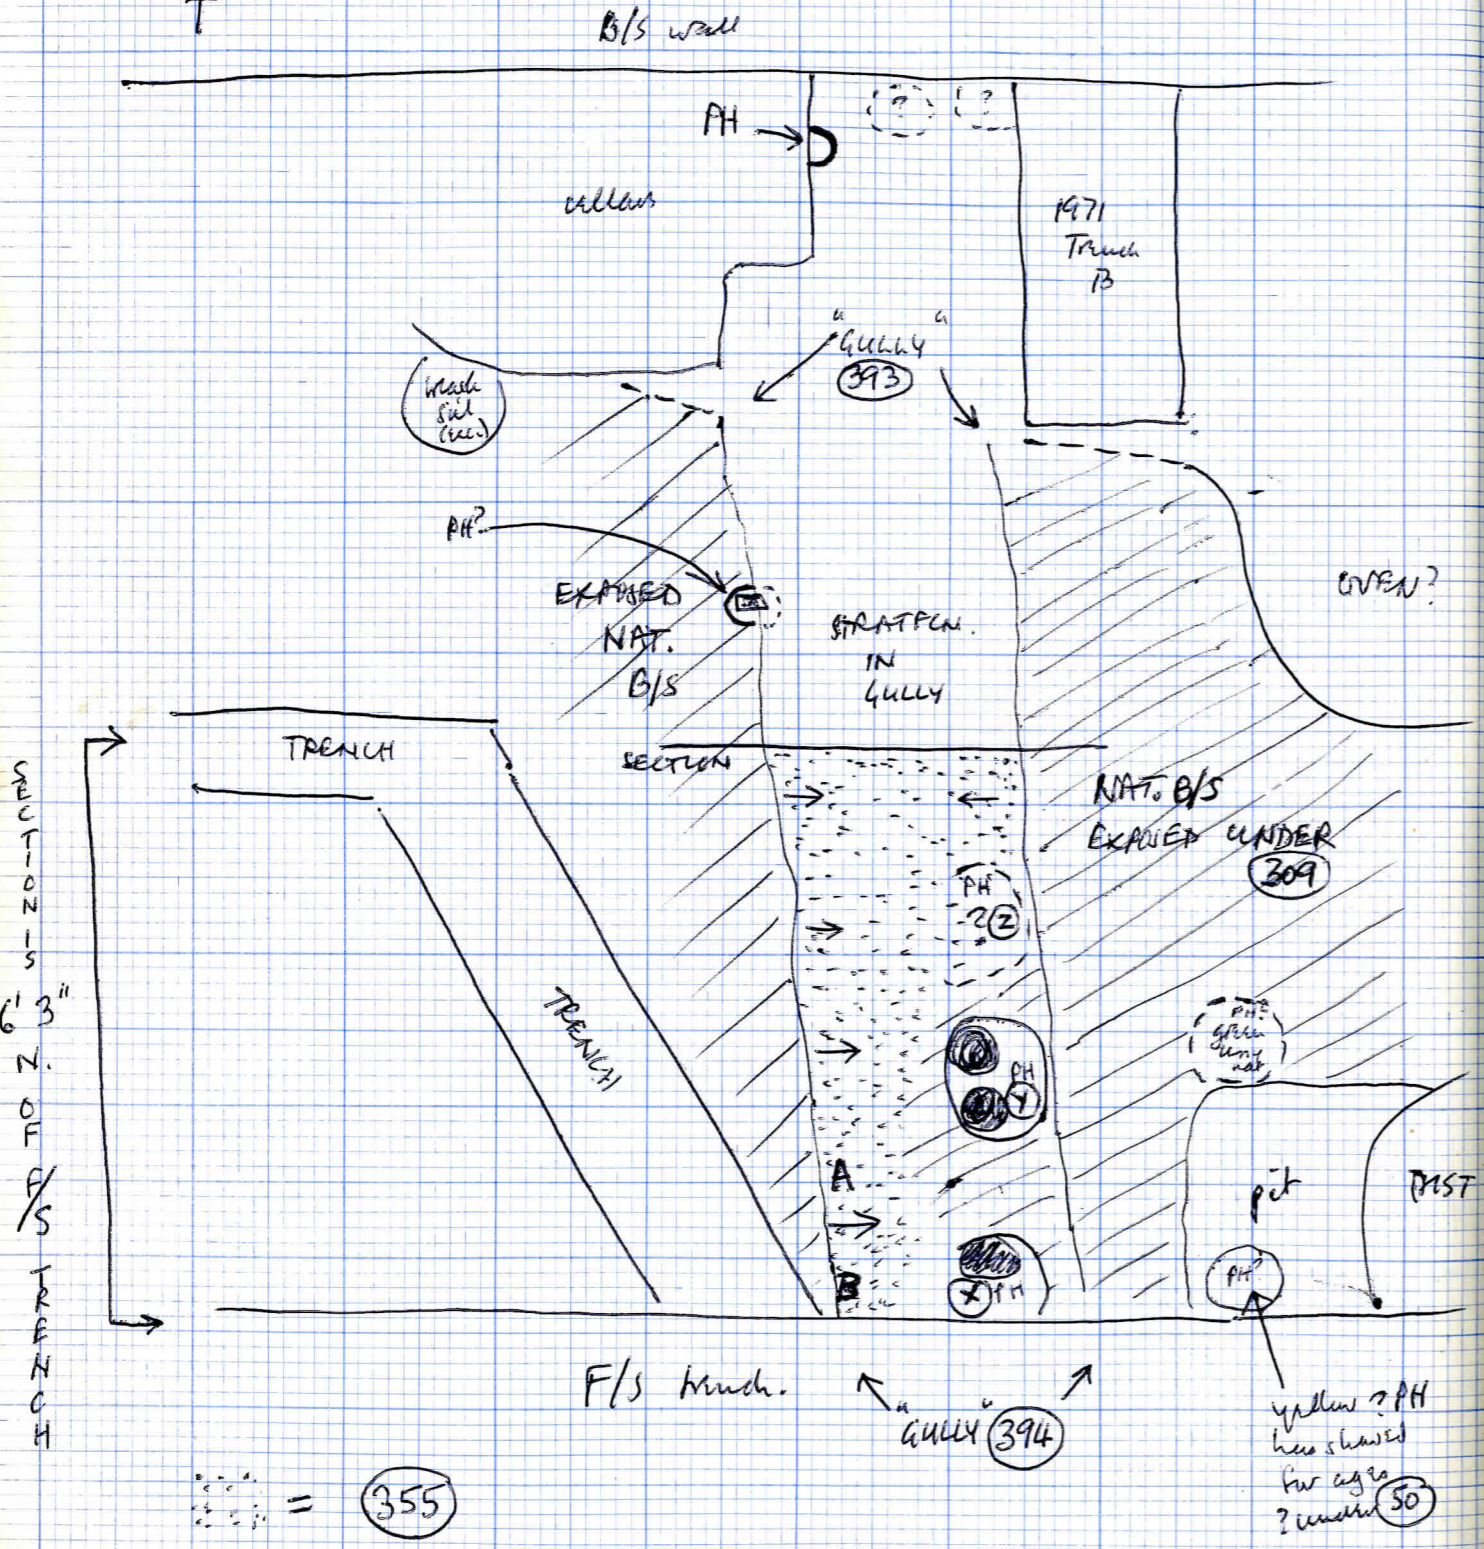 B/S wall
PH
? ?
cellars
1971
Trench
B
"GULLY"
393
(exc.)
PH?
EXPOSED
NAT.
B/S
STRATFCN.
IN
GULLY
OVEN?
TRENCH
SECTION
NAT. B/S
EXPOSED UNDER
309
PH
? Z
SECTION IS 6' 3" N. OF F/S TRENCH
TRENCH
PH
Y
PH?
green
nat
A
B
X PH
pit
DIST
PH?
F/S trench.
"GULLY" 394
yellow ? PH
has showed
for ages
? under 50
= 355